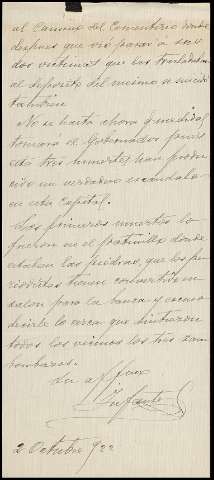 al Camino del Cementerio donde
despues que vió pasar a sus
dos victimas que las trasladaban
al deposito del mismo se suicidó
tambien.
No se hasta ahora que medidas
tomará el Gobernador pues
estas tres muertes han produ
cido un verdadero escandalo
en esta capital.
Las primeras muertes lo
fueron en el patinillo donde
estaban las piedras, que los pe
riodistas tienen convertido en
salon para la banca y
decirle lo cerca que sintieron
todos los vecinos los tres zam
bombazos.
Su aff
Infante
2 Octubre 922